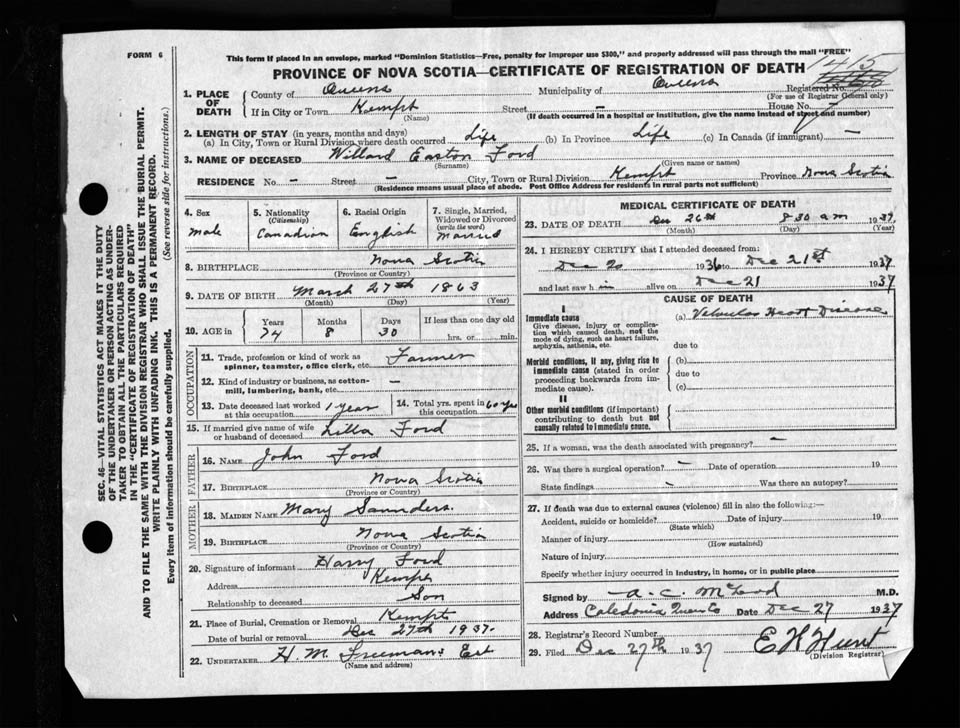 FORM 6
This form if placed in an envelope, marked "Dominion Statistics—Free, penalty for improper use $300," and properly addressed will pass through the mail "FREE"
PROVINCE OF NOVA SCOTIA—CERTIFICATE OF REGISTRATION OF DEATH
1415
1. PLACE OF DEATH County of Queens Municipality of Queens Registered No.
(For use of Registrar General only)
If in City or Town Kempt Street – House No.
(Name) (If death occurred in a hospital or institution, give the name instead of street and number)
2. LENGTH OF STAY (in years, months and days)
(a) In City, Town or Rural Division where death occurred Life (b) In Province Life (c) In Canada (if immigrant) —
3. NAME OF DECEASED Willard Easton Ford
(Surname) (Given name or names)
RESIDENCE No. – Street – City, Town or Rural Division Kempt Province Nova Scotia
(Residence means usual place of abode. Post Office Address for residents in rural parts not sufficient)
4. Sex Male
5. Nationality (Citizenship) Canadian
6. Racial Origin English
7. Single, Married, Widowed or Divorced (write the word) Married
8. BIRTHPLACE Nova Scotia
(Province or Country)
9. DATE OF BIRTH March 27th 1863
(Month) (Day) (Year)
10. AGE in Years Months Days If less than one day old
74 8 30 hrs. or min.
OCCUPATION
11. Trade, profession or kind of work as spinner, teamster, office clerk, etc. Farmer
12. Kind of industry or business, as cotton-mill, lumbering, bank, etc. –
13. Date deceased last worked at this occupation 1 year
14. Total yrs. spent in this occupation 60 yrs
15. If married give name of wife or husband of deceased Lilla Ford
FATHER
16. NAME John Ford
17. BIRTHPLACE Nova Scotia
(Province or Country)
MOTHER
18. MAIDEN NAME Mary Saunders.
19. BIRTHPLACE Nova Scotia
(Province or Country)
20. Signature of informant Harry Ford
Address Kempt
Relationship to deceased Son
21. Place of Burial, Cremation or Removal Kempt
Date of burial or removal Dec 27th 1937.
22. UNDERTAKER H. M. Freemans Est
(Name and address)
MEDICAL CERTIFICATE OF DEATH
23. DATE OF DEATH Dec 26th 8 30 am 1937
(Month) (Day) (Year)
24. I HEREBY CERTIFY that I attended deceased from:
Dec 20 1936 to Dec 21st 1937
and last saw h im alive on Dec 21 1937
CAUSE OF DEATH
I
Immediate cause
Give disease, injury or complication which caused death, not the mode of dying, such as heart failure, asphyxia, asthenia, etc.
(a) Valvular Heart Disease
due to
Morbid conditions, if any, giving rise to immediate cause (stated in order proceeding backwards from immediate cause).
(b)
due to
(c)
II
Other morbid conditions (if important) contributing to death but not causally related to immediate cause.
25. If a woman, was the death associated with pregnancy? –
26. Was there a surgical operation? – Date of operation 19
State findings – Was there an autopsy?
27. If death was due to external causes (violence) fill in also the following:—
Accident, suicide or homicide? Date of injury 19
(State which)
Manner of injury
(How sustained)
Nature of injury
Specify whether injury occurred in industry, in home, or in public place
Signed by A. C. McLeod M.D.
Address Caledonia Queens Date Dec 27 1937
28. Registrar's Record Number
29. Filed Dec 27th 1937 E H Hunt
(Division Registrar)
SEC. 46—VITAL STATISTICS ACT MAKES IT THE DUTY
OF THE UNDERTAKER OR PERSON ACTING AS UNDER-
TAKER TO OBTAIN ALL THE PARTICULARS REQUIRED
IN THE "CERTIFICATE OF REGISTRATION OF DEATH"
AND TO FILE THE SAME WITH THE DIVISION REGISTRAR WHO SHALL ISSUE THE BURIAL PERMIT.
WRITE PLAINLY WITH UNFADING INK. THIS IS A PERMANENT RECORD.
Every item of information should be carefully supplied. (See reverse side for instructions.)